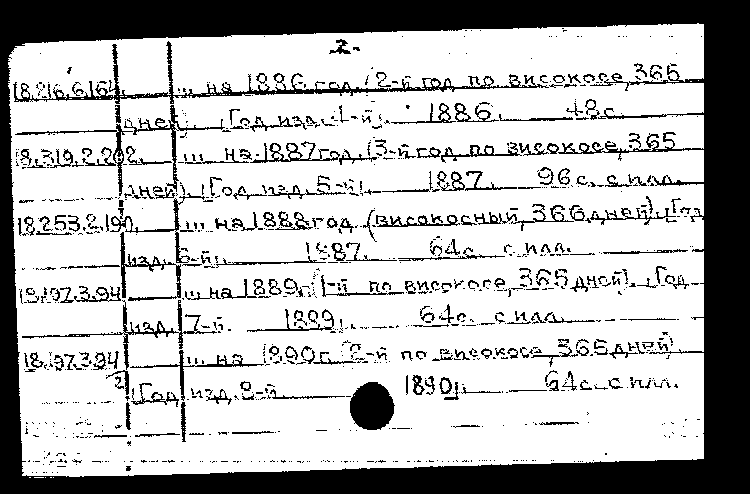 -2-
18.216.6.164. ... на 1886 год. (2-й год по високосе, 365
дней). [Год изд. 4-й]. 1886. 48с.
18.319.2.202. ... на 1887 год. (3-й год по високосе, 365
дней). [Год изд. 5-й]. 1887. 96с. с илл.
18.253.2.190. ... на 1888 год (високосный, 366 дней). [Год
изд. 6-й]. 1887. 64с. с илл.
18.197.3.94 ... на 1889г. (1-й по високосе, 365 дней). [Год
изд. 7-й. 1889]. 64с. с илл.
18.197.3.94 ... на 1890г. (2-й по високосе, 365 дней).
2 [Год изд. 8-й. 1890]. 64с. с илл.